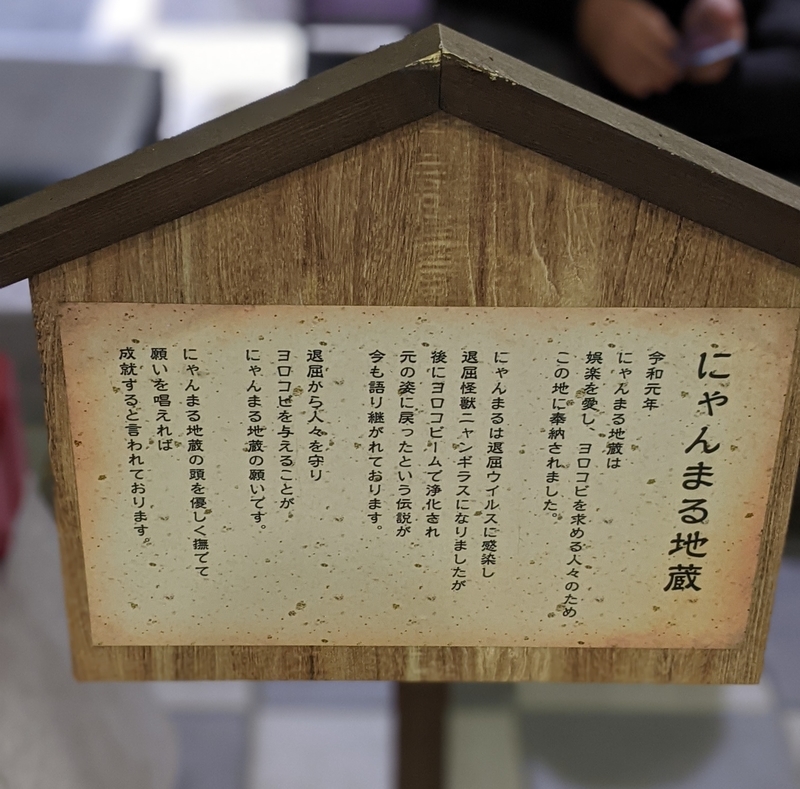 にゃんまる地蔵
令和元年
にゃんまる地蔵は
娯楽を愛し、ヨロコビを求める人々のため
この地に奉納されました。
にゃんまるは退屈ウイルスに感染し
退屈怪獣ニャンギラスになりましたが
後にヨロコビームで浄化され
元の姿に戻ったという伝説が
今も語り継がれております。
退屈から人々を守り
ヨロコビを与えることが
にゃんまる地蔵の願いです。
にゃんまる地蔵の頭を優しく撫でて
願いを唱えれば
成就すると言われております。